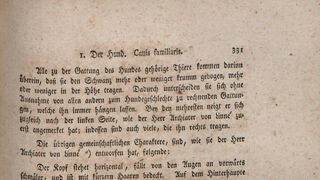 1. Der Hund. Canis familiaris. 331
Alle zu der Gattung des Hundes gehörige Thiere kommen darinn
überein, daß sie den Schwanz mehr oder weniger krumm gebogen, mehr
oder weniger in der Höhe tragen. Dadurch unterscheiden sie sich ohne
Ausnahme von allen andern zum Hundegeschlechte zu rechnenden Gattun-
gen, welche ihn immer hängen lassen. Bey den mehresten neigt er sich
zugleich nach der linken Seite, wie der Herr Archiater von Linne' zu-
erst angemerket hat; indessen sind auch viele, die ihn rechts tragen.
Die übrigen gemeinschaftlichen Charaktere, sind, wie sie der Herr
Archiater von Linne' ⁿ) entworfen hat, folgende:
Der Kopf stehet horizontal, fällt von den Augen an vorwärts
schmäler, und ist mit kurzen Haaren bedeckt. Auf dem Hinterhaupte